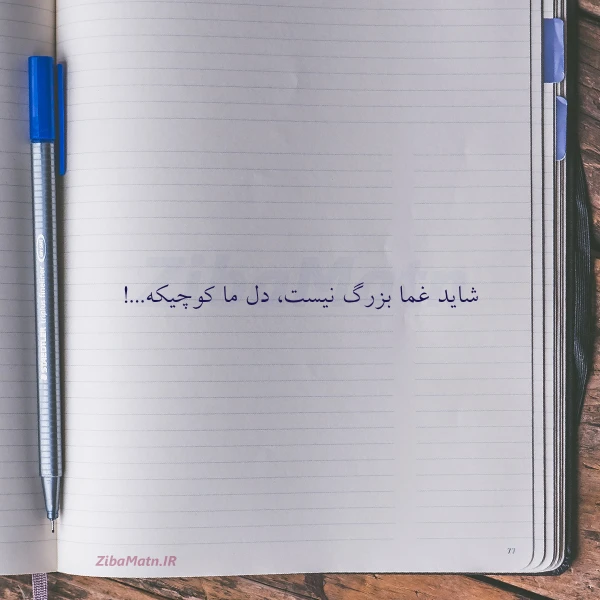 شاید غما بزرگ نیست، دل ما کوچیکه...!
ZibaMatn
ZibaMatn.IR
77